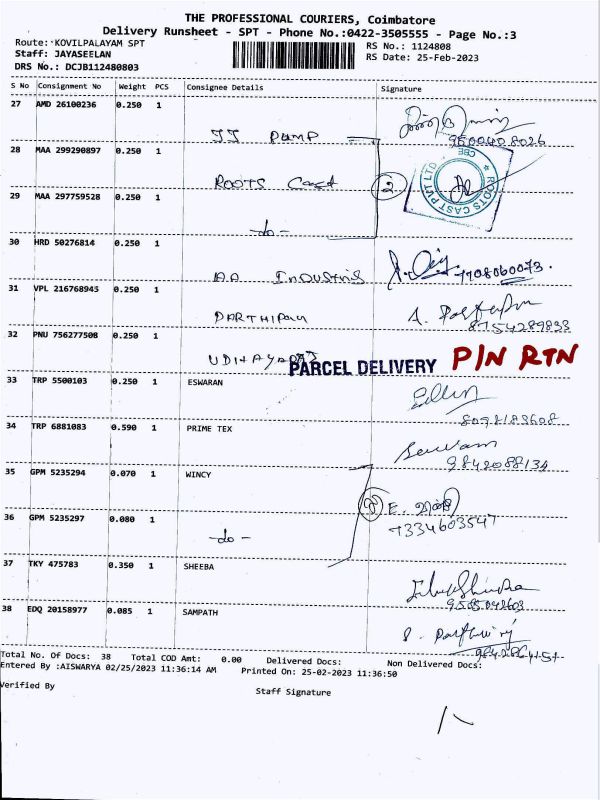 THE PROFESSIONAL COURIERS, Coimbatore
Delivery Runsheet - SPT - Phone No.:0422-3505555 - Page No.:3
Route: KOVILPALAYAM SPT RS No.: 1124808
Staff: JAYASEELAN RS Date: 25-Feb-2023
DRS No.: DCJB112480803
S No Consignment No Weight PCS Consignee Details Signature
27 AMD 26100236 0.250 1
JJ PUMP 9500408026
28 MAA 299290897 0.250 1
ROOTS Cast 2 ROOTS CAST PVT LTD CBE
29 MAA 297759528 0.250 1
-do-
30 HRD 50276814 0.250 1
AA INDUSTRIS 7708060073.
31 VPL 216768945 0.250 1
PARTHIPAN 8754289833
32 PNU 756277508 0.250 1
UDHAYARAJ PARCEL DELIVERY P/N RTN
33 TRP 5500103 0.250 1 ESWARAN
8098183608
34 TRP 6881083 0.590 1 PRIME TEX
9842088134
35 GPM 5235294 0.070 1 WINCY
36 GPM 5235297 0.080 1 E.
-do- 7334603547
37 TKY 475783 0.350 1 SHEEBA
38 EDQ 20158977 0.085 1 SAMPATH
Total No. Of Docs: 38 Total COD Amt: 0.00 Delivered Docs: Non Delivered Docs:
Entered By :AISWARYA 02/25/2023 11:36:14 AM Printed On: 25-02-2023 11:36:50
Verified By
Staff Signature